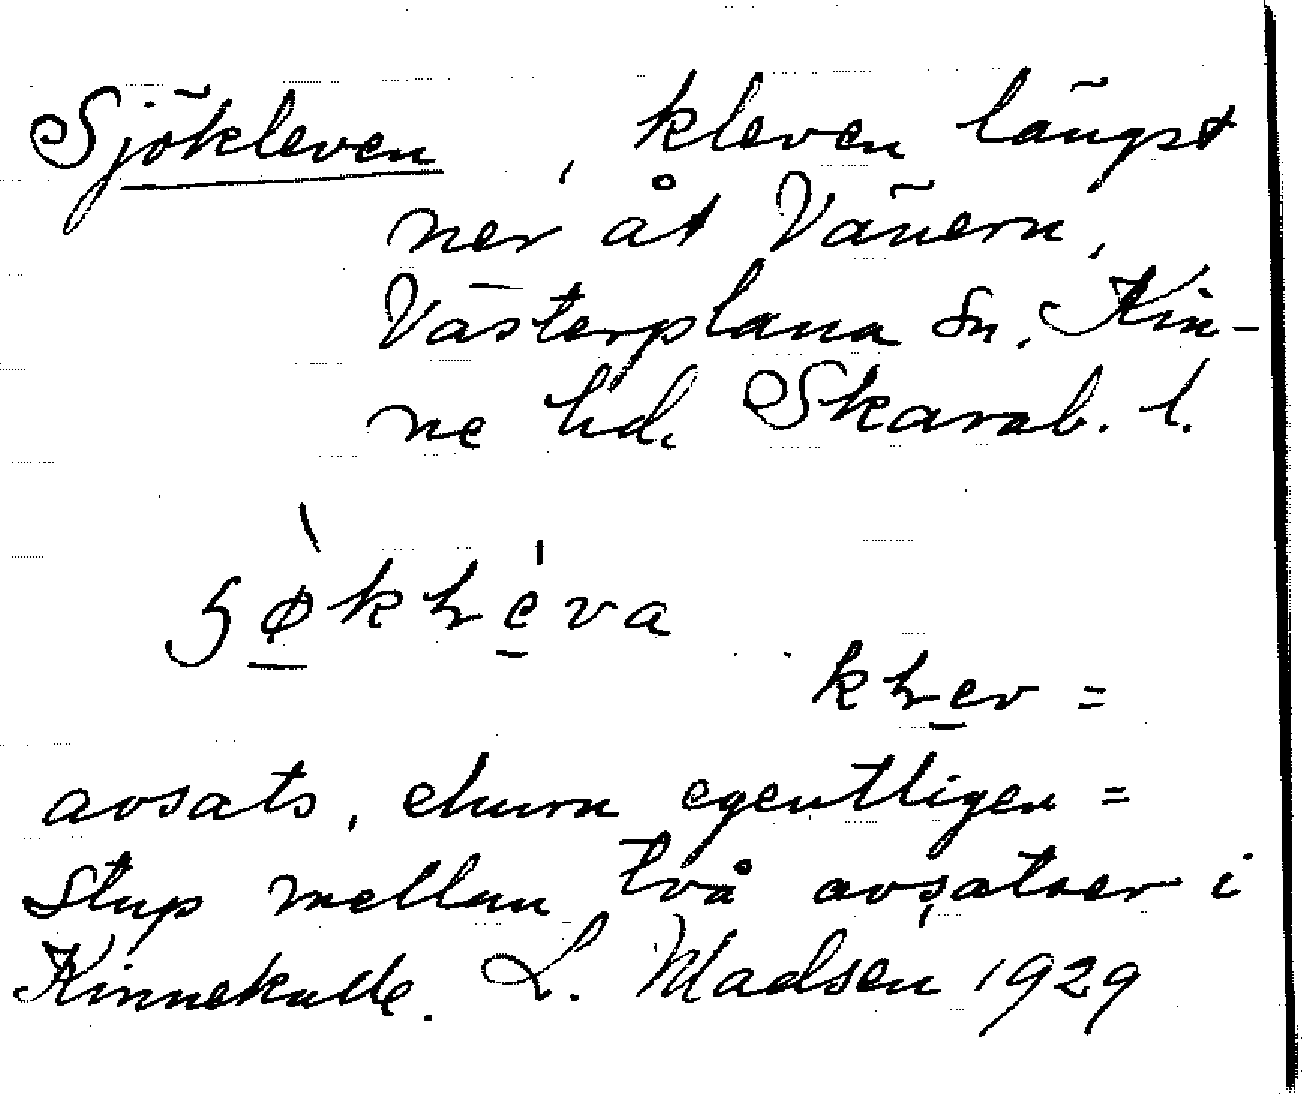 Sjökleven, kleven längst
ner åt Vänern,
Västerplana sn. Kin-
ne hd. Skarab. l.
klev =
avsats, ehuru egentligen =
stup mellan två avsatser i
Kinnekulle. L. Madsén 1929